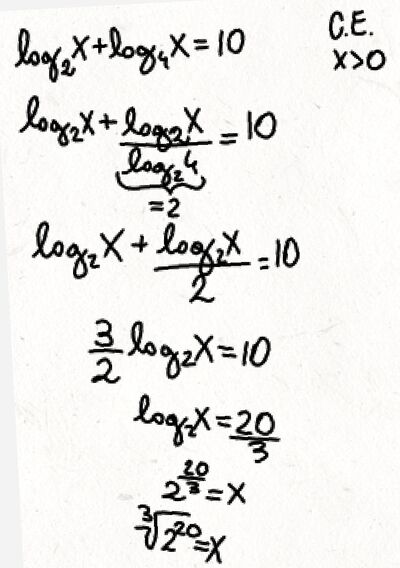 log₂x+log₄x=10
C.E.
x>0
log₂x+log₂x/log₂4=10
=2
log₂x+log₂x/2=10
3/2 log₂x=10
log₂x=20/3
2^(20/3)=x
³√(2²⁰)=x